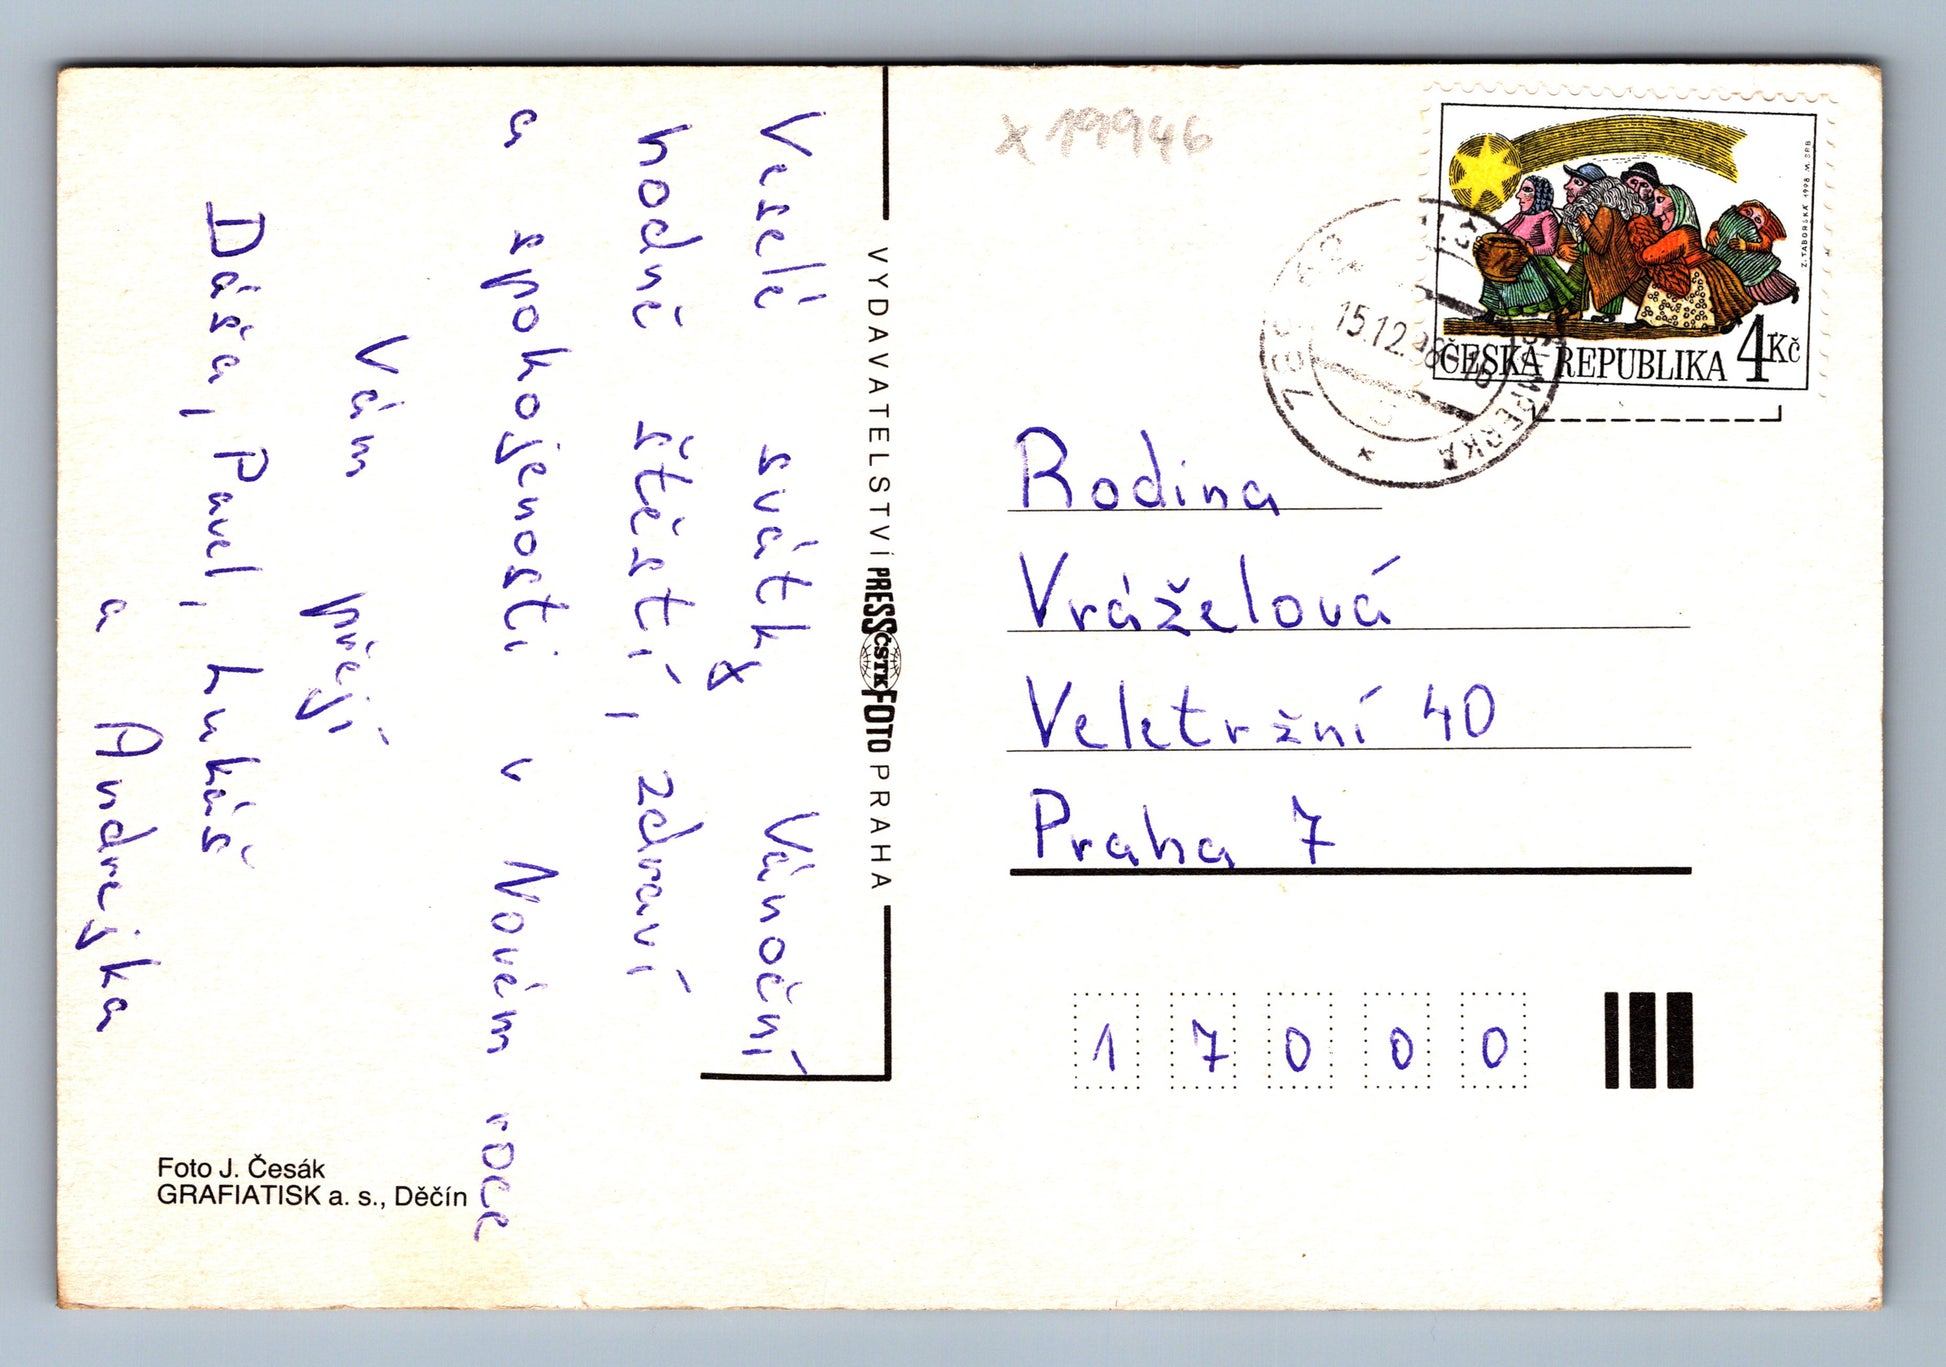 Veselé svátky Vánoční
hodně štěstí, zdraví
a spokojenosti v Novém roce
Vám přejí
Dáša, Pavel, Lukáš
a Andrejka
VYDAVATELSTVÍ PRESSFOTO PRAHA
ČSTK
Foto J. Česák
GRAFIATISK a. s., Děčín
x 19946
Z. TABORSKÁ 1998 M. SRB
ČESKÁ REPUBLIKA 4Kč
15.12.98-16
Rodina
Vráželová
Veletržní 40
Praha 7
17000